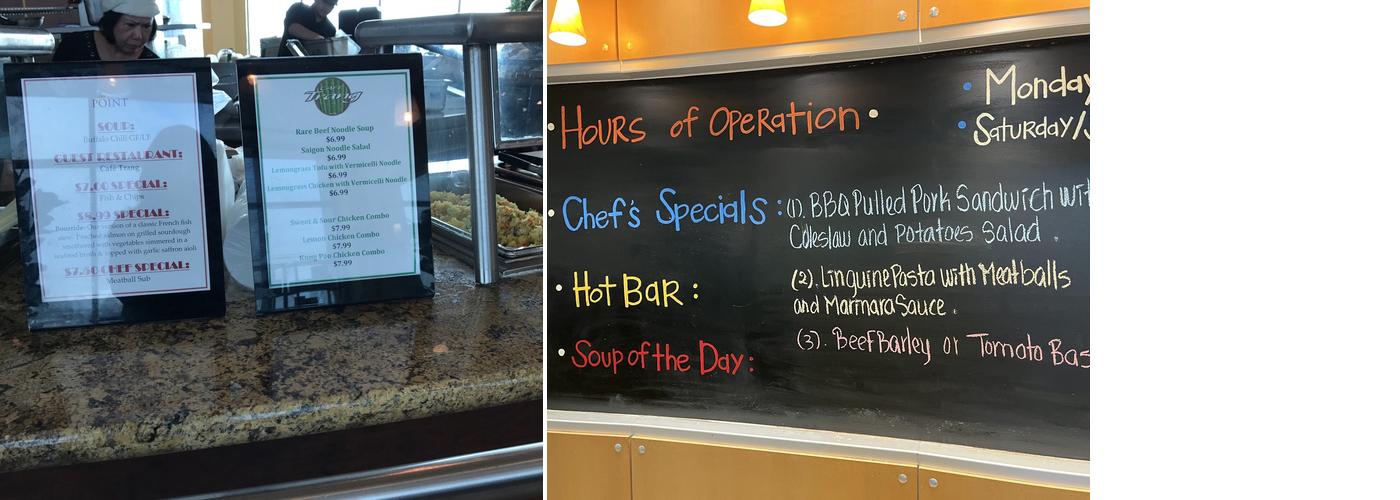 POINT
SOUP:
Buffalo Chili GF/LF
GUEST RESTAURANT:
Café Trang
$7.00 SPECIAL:
Fish & Chips
$8.99 SPECIAL:
Bourride: Our version of a classic French fish
stew. Poached salmon on grilled sourdough
smothered with vegetables simmered in a
seafood broth & topped with garlic saffron aioli
$7.50 CHEF SPECIAL:
Meatball Sub
Trang
Rare Beef Noodle Soup
$6.99
Saigon Noodle Salad
$6.99
Lemongrass Tofu with Vermicelli Noodle
$6.99
Lemongrass Chicken with Vermicelli Noodle
$6.99
Sweet & Sour Chicken Combo
$7.99
Lemon Chicken Combo
$7.99
Kung Pao Chicken Combo
$7.99
Hours of Operation
Monday
Saturday/S
Chef's Specials: (1). BBQ Pulled Pork Sandwich wit
Coleslaw and Potatoes Salad.
Hot Bar: (2). Linguine Pasta with Meatballs
and Marmara Sauce.
Soup of the Day: (3). Beef Barley or Tomato Bas